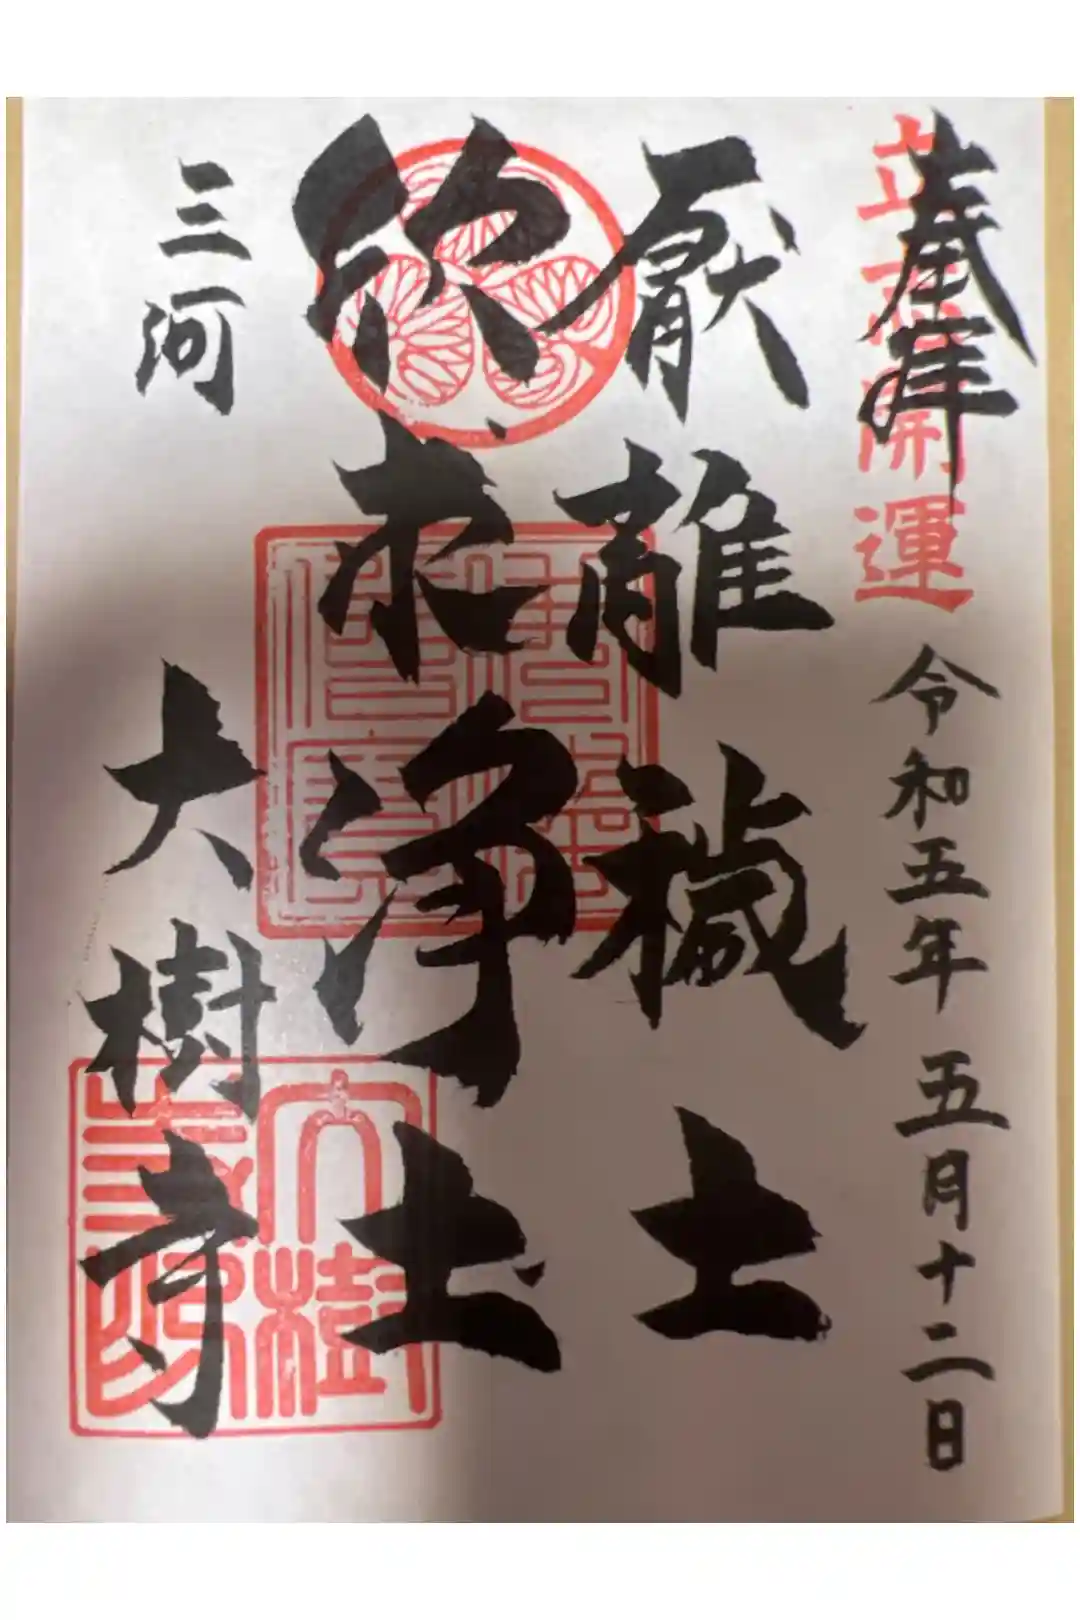 奉拝
立志開運
令和五年 五月十二日
厭離穢土
欣求浄土
三河
大樹寺